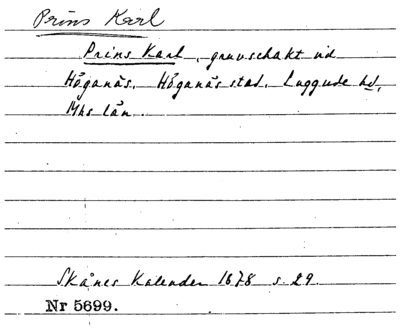 Prins Karl
Prins Karl, gruvschakt vid
Höganäs. Höganäs stad. Luggude hd,
Mhs län.
Skånes Kalender 1878 s. 29.
Nr 5699.